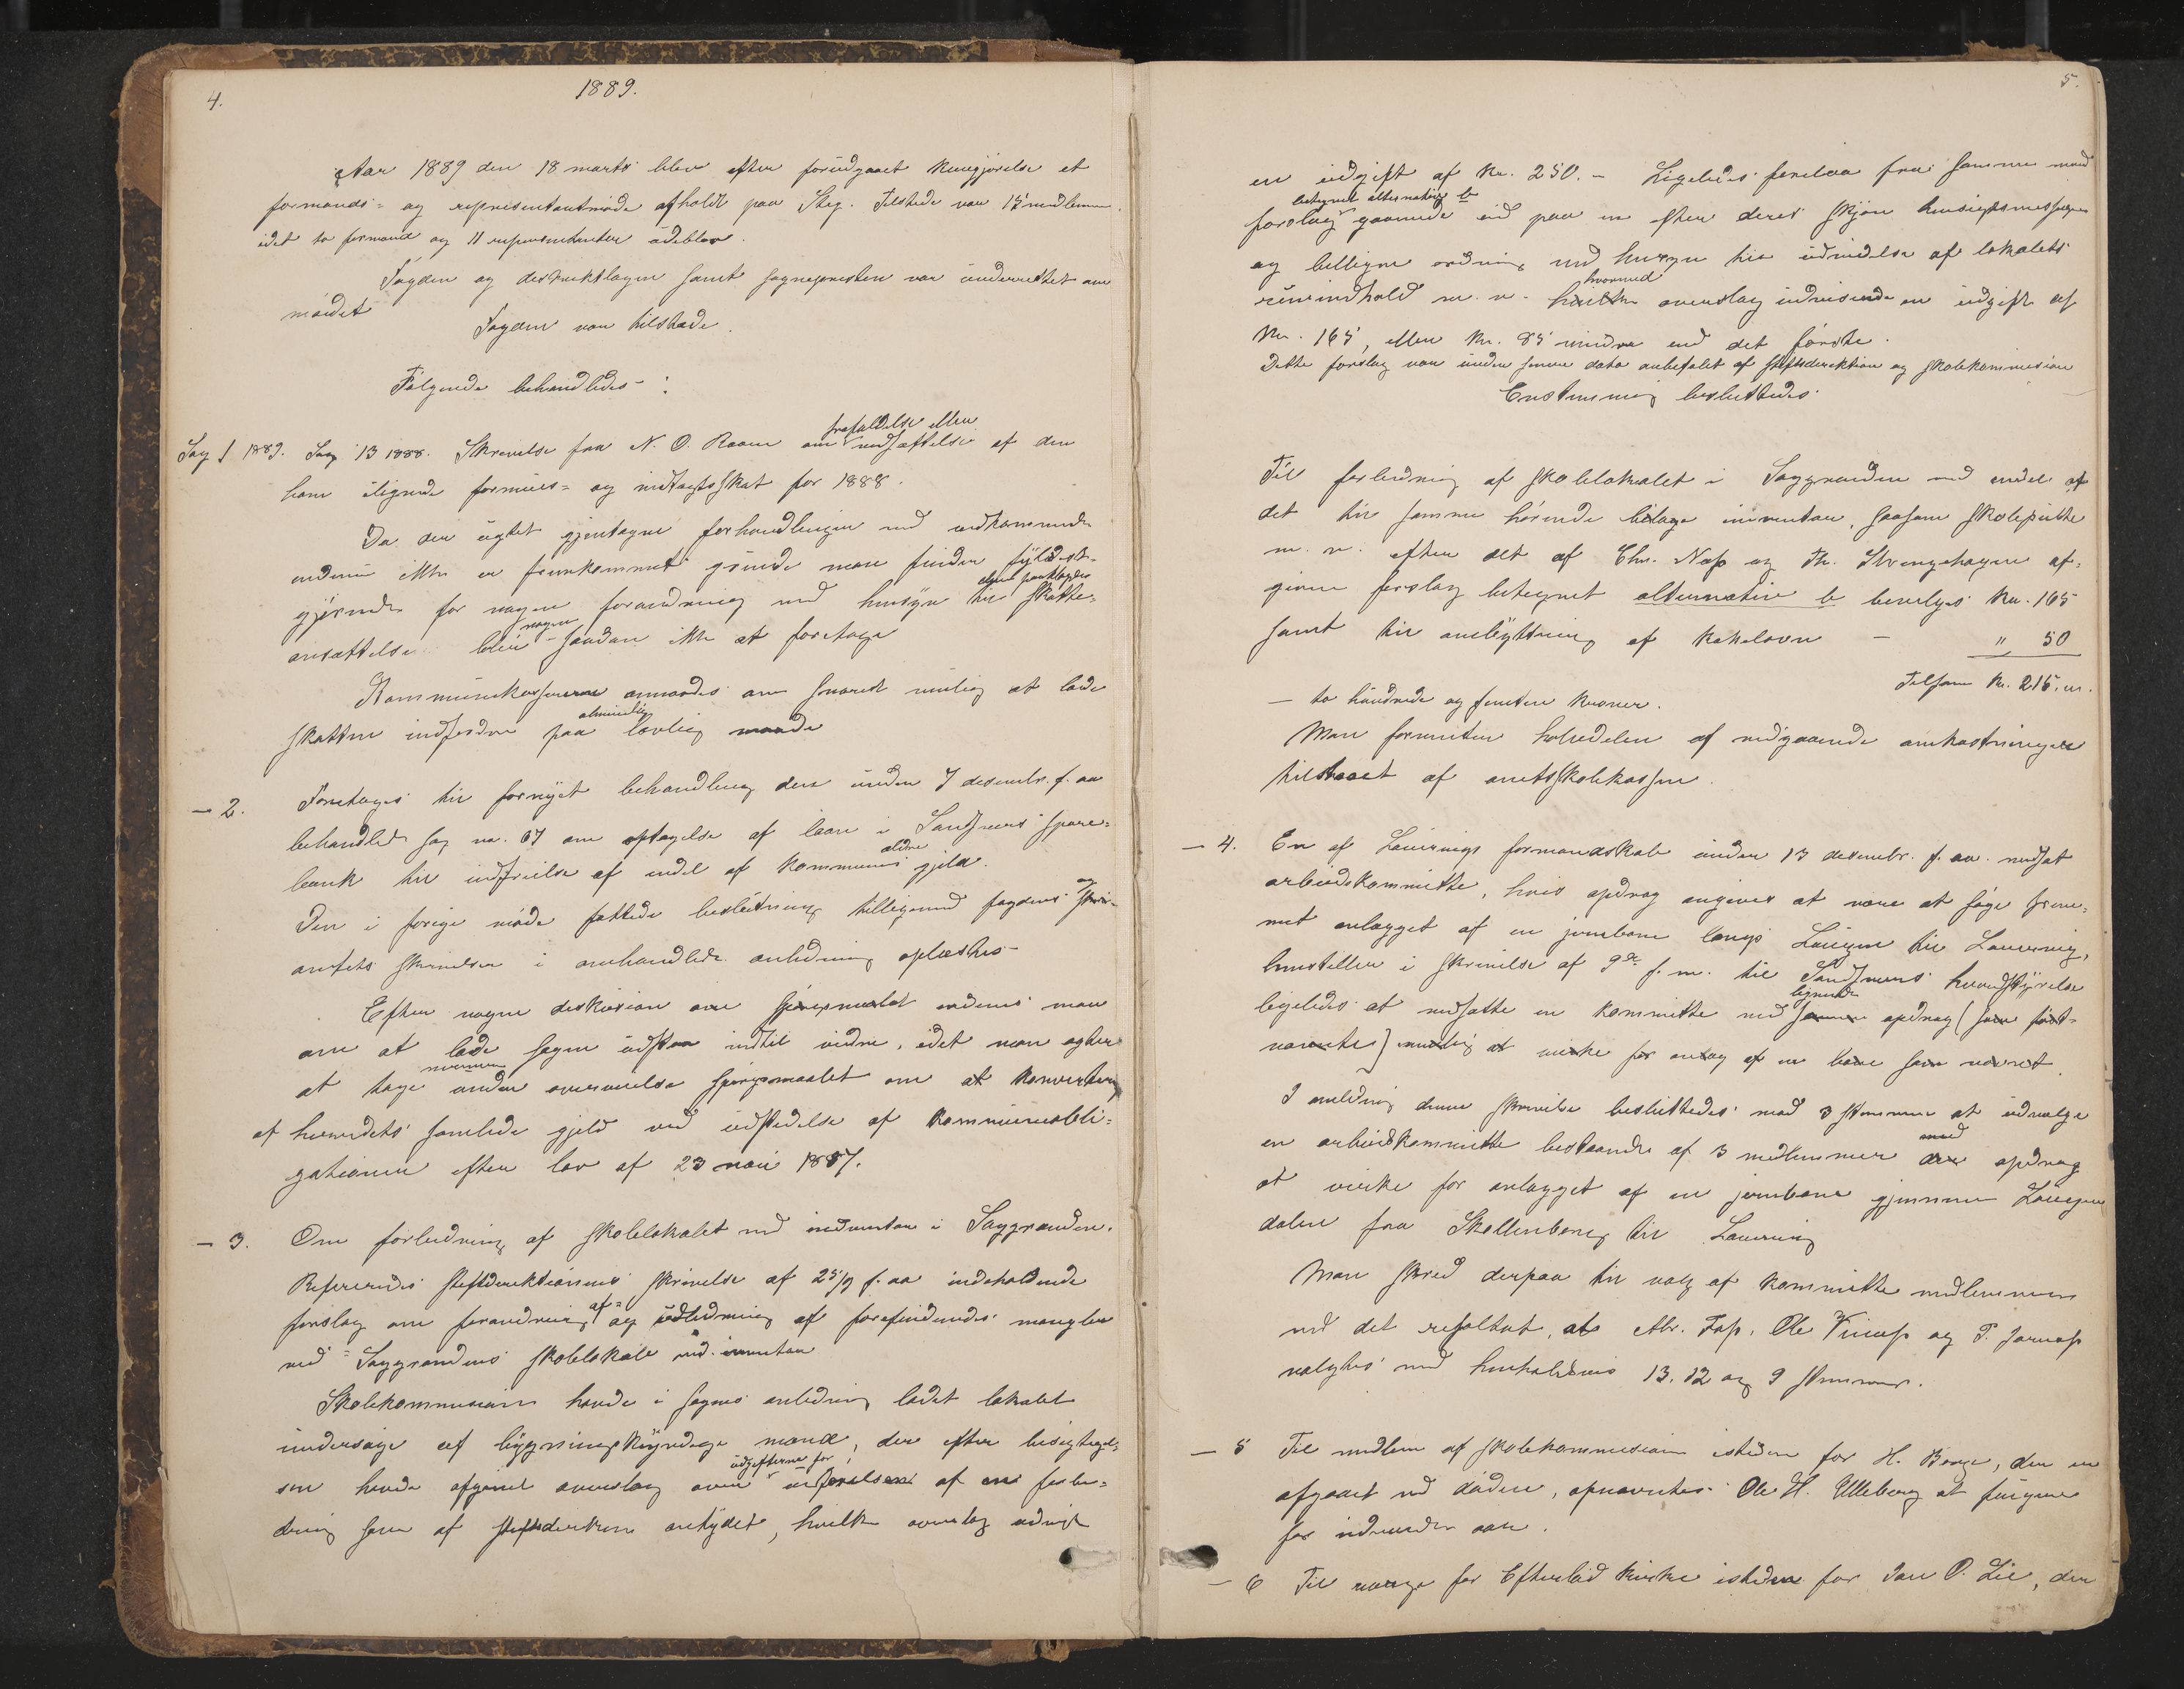 4.
1889.
Aar 1889 den 18 marts blev efter forudgaaet kungjørelse et
formands- og representantmøde afholdt paa Steg. Tilstede var 15 medlemmer
idet to formænd og 11 representanter udeblev.
Fogden og distriktslægen samt sognepresten var underrettet om
mødet
Fogden var tilstede.
Følgende behandledes:
Sag 1 1889. Sag 13 1888. Skrivelse fra N. O. Raaen om frafaldelse eller nedsættelse af den
ham ilignede formues- og indtægtsskat for 1888.
Da der ugtet gjentagne forhandlinger med vedkommende
endnu ikke er fremkommet grunde man finder fyldest-
gjørende for nogen forandring med hensyn til den paaklagede skatte-
ansættelse blev nogen saadan ikke at foretage
Kommunekassereren anmodes om snarest mulig at lade
skatten inddrive paa almindelig lovlig maade
- 2. Foretages til fornyet behandling den under 7 desembr. f. aa
behandlede sag no. 67 om optagelse af laan i Sandsverds spare-
bank til indfrielse af endel af kommunens ældre gjeld.
Den i forrige møde fattede beslutning tilligemed fogdens og
amtets skrivelser i omhandlede anledning oplæstes
Efter nogen diskusion over spørgsmaalet enedes man
om at lade sagen udstaa indtil videre, idet man agter
at tage nærmere under overveielse spørgsmaalet om at konvertere
af herredets samlede gjeld ved udstedelse af kommuneobli-
gationer efter lov af 23 mai 1887.
- 3. Om forbedring af skolelokalet med inventar i Saggrenden.
Refereredes stiftsdirektionens skrivelse af 25/9 f. aa indeholdende
forslag om forandring af og udbedring af forefindende mangler
ved Saggrendens skolelokale med inventar
Skolekommisionen havde i sagens anledning ladet lokalet
undersøge af bygningskyndige mænd, der efter besigtigel-
sen havde afgivet overslag over udgifterne for udførelsen af en forbe-
dring som af stiftsdirektionen antydet, hvilket overslag udviste
5.
en udgift af kr. 250. - Ligeledes forelaa fra samme mænd
forslag betegnet alternativ b gaaende ud paa en efter deres skjøn hensigtsmessigere
og billigere ordning med hensyn til udvidelse af lokalets
rumindhold m. v. hvormed overslag udvisende en udgift af
kr. 165, eller kr. 85 mindre end det første.
Dette forslag var under senere dato anbefalet af stiftsdirektion og skolekommision
Enstemmig besluttedes:
Til forbedring af skolelokalet i Saggrenden med endel af
det til samme hørende inventar, saasom skolepulte
m. v. efter det af Chr. Næss og Th. Strengehagen af-
givne forslag betegnet alternativ b bevilges kr. 165
samt til ombytning af kakelovn - " 50
Tilsam kr. 215. m.
- to hundrede og femten kroner.
Man forventer halvdelen af vedgaaende omkostninger
tilstaaet af amtsskolekassen.
- 4. En af Laurvigs formandskab under 13 desembr. f. aa. nedsat
arbeidskommitte, hvis opdrag angives at være at søge frem-
met anlægget af en jernbane langs Laugen til Laurvig,
henstiller i skrivelse af 9de f. m. til Sandsverds herredsstyrelse
ligeledes at nedsætte en kommitte med lignende opdrag (som først-
nævnte) nemlig at virke for anlæg af en bane som nævnt.
I anledning denne skrivelse besluttedes mod 3 stemmer at udvælge
en arbeidskommitte bestaaende af 3 medlemmer med opdrag
at virke for anlægget af en jernbane gjennem Laugen
dalen fra Skollenborg til Laurvig
Man skred derpaa til valg af kommitte medlemmer
med det resultat, at Abr. Foss, Ole Vinæss og P. Jarnæss
valgtes med henholdsvis 13. 12 og 9 stemmer.
- 5 Til medlem af skolekommisionen istedenfor H. Borge, der er
afgaaet ved døden, opnævntes Ole H. Ulleberg at fungere
for indeværende aar.
- 6 Til værge for Efteløt kirke istedenfor Jan O. Lie, der